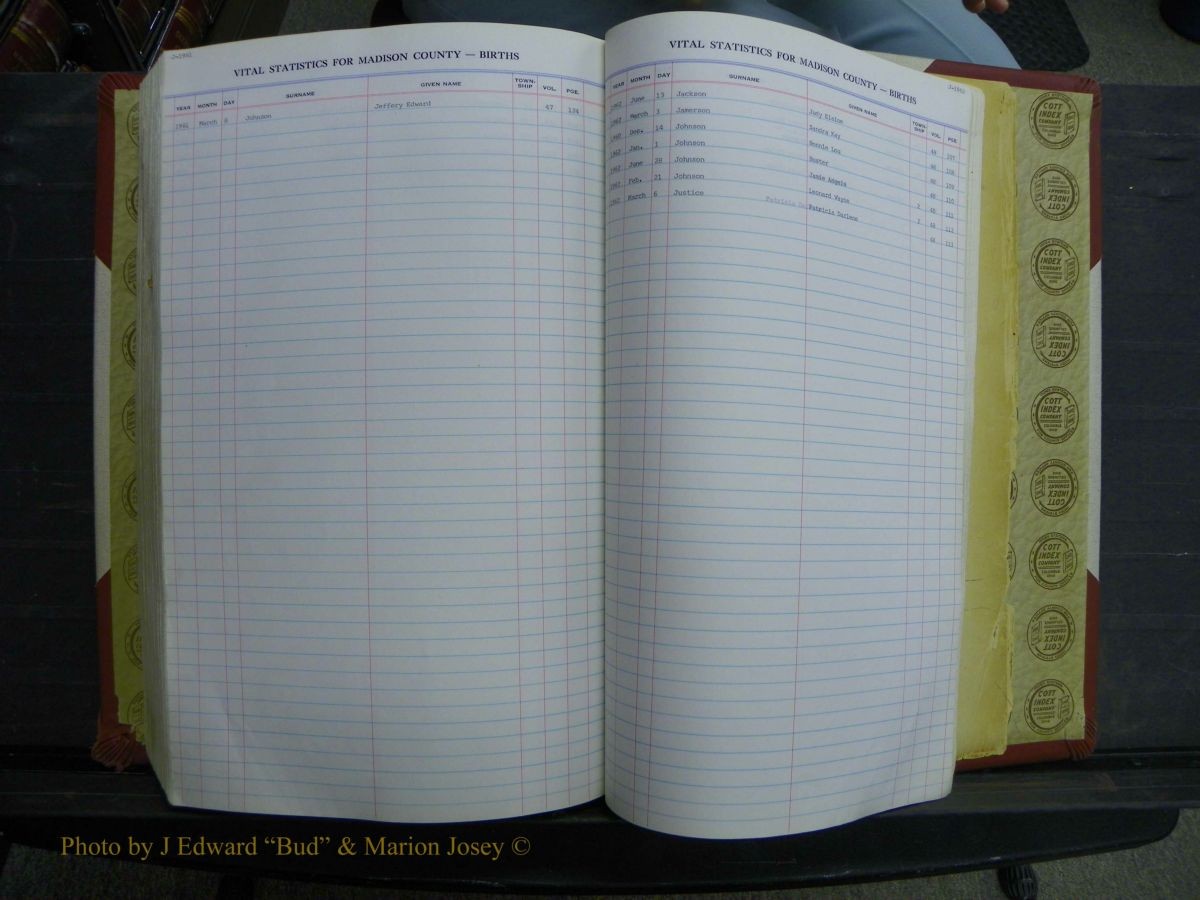 J-1961
VITAL STATISTICS FOR MADISON COUNTY — BIRTHS
YEAR MONTH DAY SURNAME GIVEN NAME TOWN-SHIP VOL. PGE.
March 8 Johnson Jeffery Edward 47 134
J-1962
VITAL STATISTICS FOR MADISON COUNTY — BIRTHS
YEAR MONTH DAY SURNAME GIVEN NAME TOWN-SHIP VOL. PGE.
1962 June 13 Jackson Judy Elaine 48 107
1962 March 3 Jamerson Sandra Kay 48 108
Dec. 14 Johnson Bonnie Lou 48 109
1962 Jan. 1 Johnson Buster 48 110
1962 June 28 Johnson Jamie Angela 2 48 111
1962 Feb. 21 Johnson Leonard Wayne 2 48 112
1962 March 6 Justice Patricia Darlene 48
COTT INDEX COMPANY COLUMBUS OHIO
Photo by J Edward “Bud” & Marion Josey ©